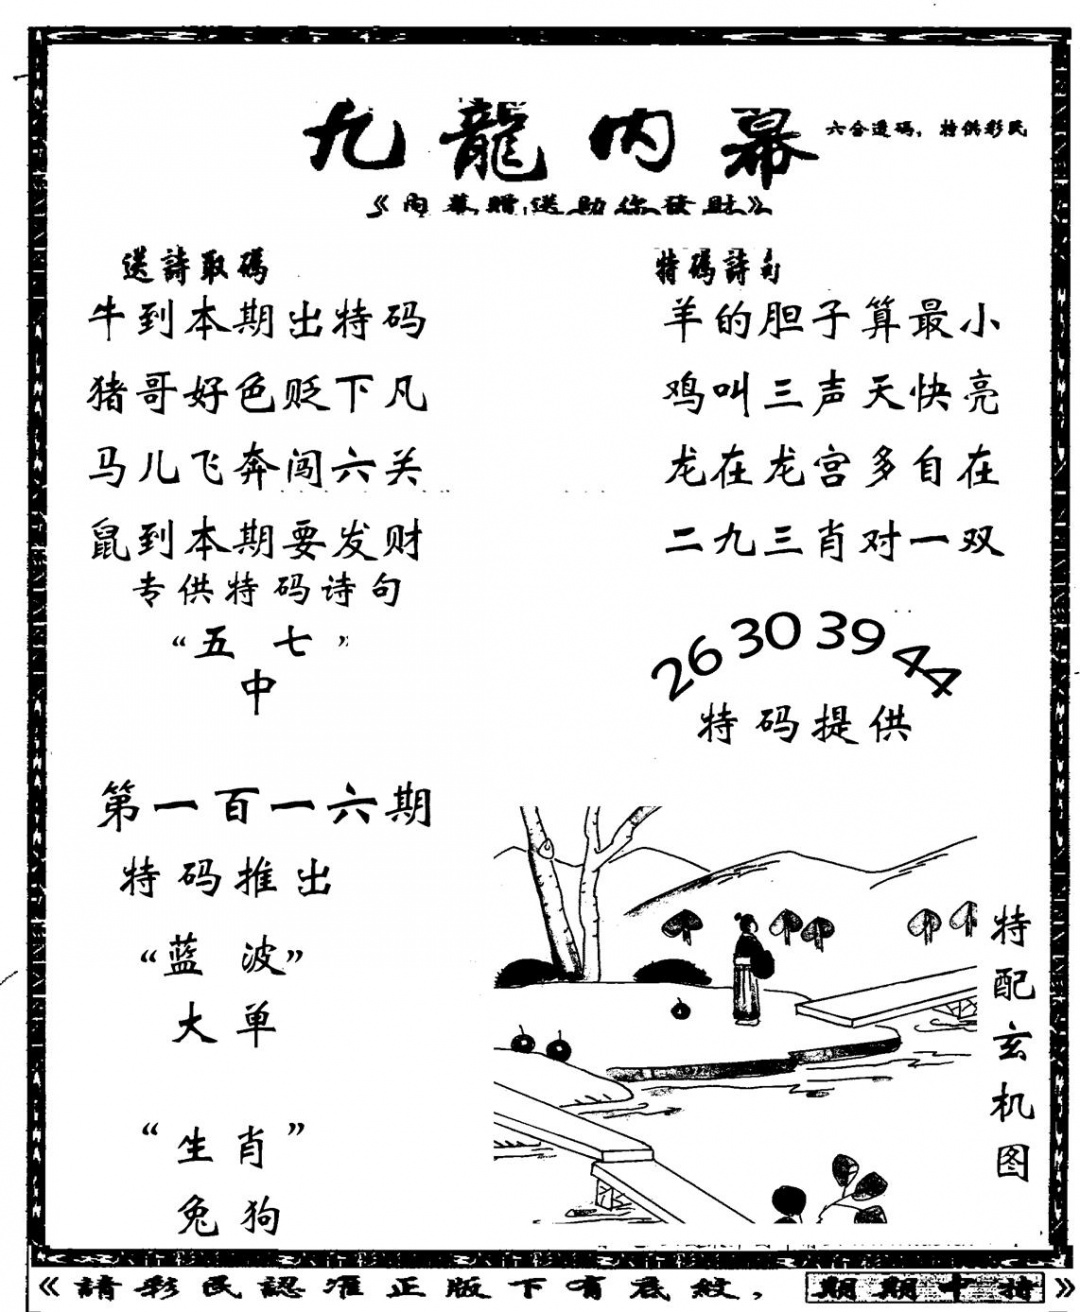 九龍内幕
六合透码，特供彩民
《内幕赠送助你發财》
送詩取碼
牛到本期出特码
猪哥好色贬下凡
马儿飞奔闯六关
鼠到本期要发财
专供特码诗句
“五 七”
中
特碼詩句
羊的胆子算最小
鸡叫三声天快亮
龙在龙宫多自在
二九三肖对一双
26 30 39 44
特码提供
第一百一六期
特码推出
“蓝 波”
大单
“生肖”
兔狗
特配玄机图
《請彩民認准正版下有底紋，期期中特》